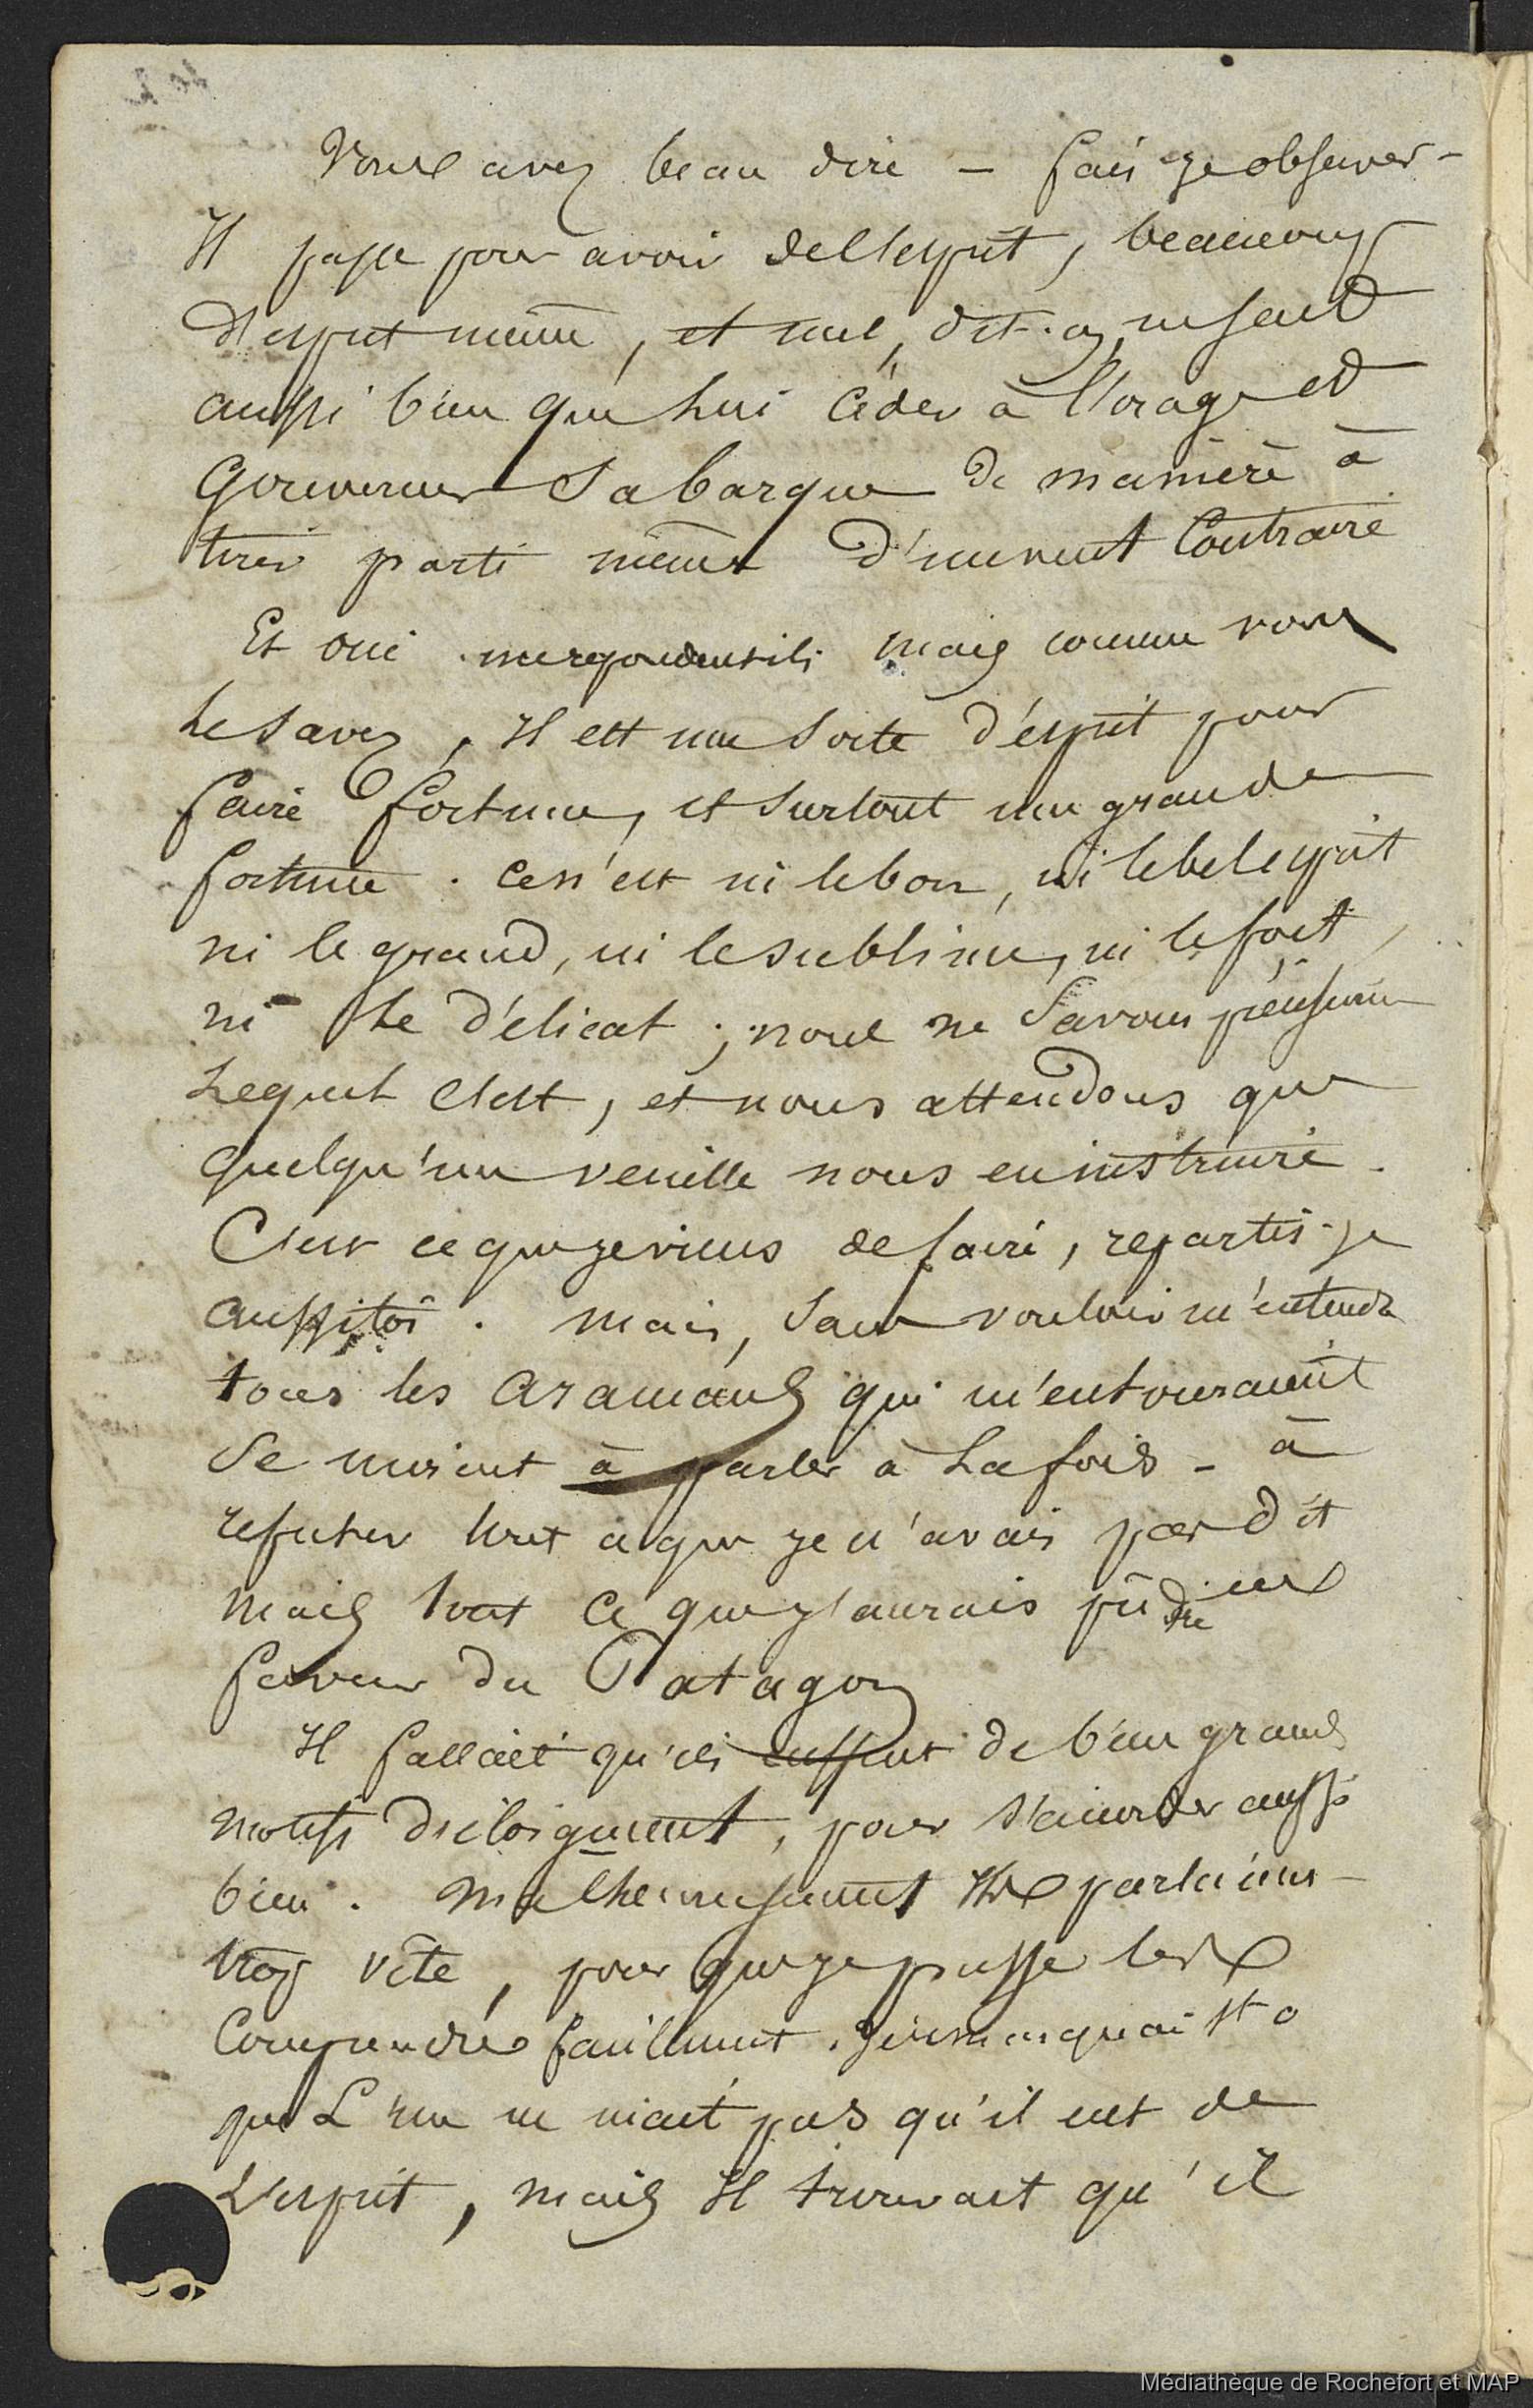 Vous avez beau dire – fais-je observer –
Il passe pour avoir de l'esprit, beaucoup
d'esprit même, et nul, dit-on, ne sait
aussi bien que lui céder à l'orage et
Gouverner Sa barque de manière à
tirer parti même d'un vent Contraire
Et oui me repondent ils mais comme vous
le Savez, Il est une Sorte d'ésprit pour
faire fortune, et Surtout une grande
fortune. Ce n'est ni le bon, ni le bel esprit
ni le grand, ni le sublime, ni le fort,
ni le délicat ; nous ne Savons précisément
Lequel c'est, et nous attendons que
quelqu'un veuille nous en instruire.
C'est ce que je viens de faire, repartis-je
aussitôt. Mais, Sans vouloir m'entendre
tous les Aramauds qui m'entouraient
Se mirent à parler à La fois – à
refuter tout ce que je n'avais pas dit
mais tout ce que j'aurais pû dire en
faveur du Patagon
Il fallait qu'ils eussent de bien grands
motifs d'éloignement, pour s'accorder aussi
bien. Malheureusement Ils parlaient
trop vite, pour que je pusse les
Comprendre facilement. Je remarquai
que L'un ne niait pas qu'il eut de
L'esprit, mais Il trouvait qu'il
Médiathèque de Rochefort et MAP